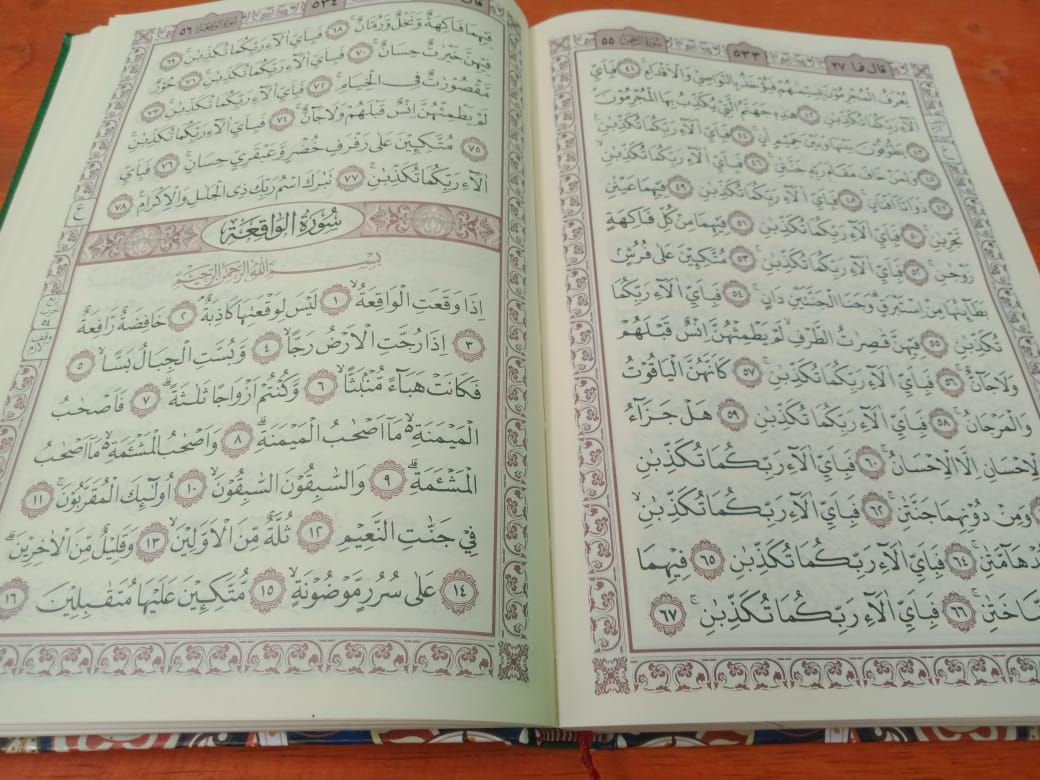 قال فما ٢٧ ٥٣٣ سورة الرحمن ٥٥
يُعْرَفُ الْمُجْرِمُوْنَ بِسِيْمٰهُمْ فَيُؤْخَذُ بِالنَّوَاصِيْ وَالْاَقْدَامِۚ ٤١ فَبِاَيِّ
اٰلَاۤءِ رَبِّكُمَا تُكَذِّبٰنِ ٤٢ هٰذِهٖ جَهَنَّمُ الَّتِيْ يُكَذِّبُ بِهَا الْمُجْرِمُوْنَۘ
٤٣ يَطُوْفُوْنَ بَيْنَهَا وَبَيْنَ حَمِيْمٍ اٰنٍۚ ٤٤ فَبِاَيِّ اٰلَاۤءِ رَبِّكُمَا تُكَذِّبٰنِ
٤٥ وَلِمَنْ خَافَ مَقَامَ رَبِّهٖ جَنَّتٰنِۚ ٤٦ فَبِاَيِّ اٰلَاۤءِ رَبِّكُمَا تُكَذِّبٰنِۙ
٤٧ ذَوَاتَآ اَفْنَانٍۚ ٤٨ فَبِاَيِّ اٰلَاۤءِ رَبِّكُمَا تُكَذِّبٰنِ ٤٩ فِيْهِمَا عَيْنٰنِ
تَجْرِيٰنِۚ ٥٠ فَبِاَيِّ اٰلَاۤءِ رَبِّكُمَا تُكَذِّبٰنِ ٥١ فِيْهِمَا مِنْ كُلِّ فَاكِهَةٍ
زَوْجٰنِۚ ٥٢ فَبِاَيِّ اٰلَاۤءِ رَبِّكُمَا تُكَذِّبٰنِۚ ٥٣ مُتَّكِـِٕيْنَ عَلٰى فُرُشٍۢ
بَطَاۤىِٕنُهَا مِنْ اِسْتَبْرَقٍۗ وَجَنَا الْجَنَّتَيْنِ دَانٍۚ ٥٤ فَبِاَيِّ اٰلَاۤءِ رَبِّكُمَا
تُكَذِّبٰنِ ٥٥ فِيْهِنَّ قٰصِرٰتُ الطَّرْفِۙ لَمْ يَطْمِثْهُنَّ اِنْسٌ قَبْلَهُمْ
وَلَا جَاۤنٌّۚ ٥٦ فَبِاَيِّ اٰلَاۤءِ رَبِّكُمَا تُكَذِّبٰنِۚ ٥٧ كَاَنَّهُنَّ الْيَاقُوْتُ
وَالْمَرْجَانُۚ ٥٨ فَبِاَيِّ اٰلَاۤءِ رَبِّكُمَا تُكَذِّبٰنِ ٥٩ هَلْ جَزَاۤءُ
الْاِحْسَانِ اِلَّا الْاِحْسَانُۚ ٦٠ فَبِاَيِّ اٰلَاۤءِ رَبِّكُمَا تُكَذِّبٰنِ
وَمِنْ دُوْنِهِمَا جَنَّتٰنِۚ ٦٢ فَبِاَيِّ اٰلَاۤءِ رَبِّكُمَا تُكَذِّبٰنِۙ
مُدْهَاۤمَّتٰنِۚ ٦٤ فَبِاَيِّ اٰلَاۤءِ رَبِّكُمَا تُكَذِّبٰنِۚ ٦٥ فِيْهِمَا
نَضَّاخَتٰنِۚ ٦٦ فَبِاَيِّ اٰلَاۤءِ رَبِّكُمَا تُكَذِّبٰنِۚ ٦٧
قال ٥٣٤ سورة الواقعة ٥٦
فِيْهِمَا فَاكِهَةٌ وَّنَخْلٌ وَّرُمَّانٌۚ ٦٨ فَبِاَيِّ اٰلَاۤءِ رَبِّكُمَا تُكَذِّبٰنِۚ ٦٩
فِيْهِنَّ خَيْرٰتٌ حِسَانٌۚ ٧٠ فَبِاَيِّ اٰلَاۤءِ رَبِّكُمَا تُكَذِّبٰنِۚ ٧١ حُوْرٌ
مَّقْصُوْرٰتٌ فِى الْخِيَامِۚ ٧٢ فَبِاَيِّ اٰلَاۤءِ رَبِّكُمَا تُكَذِّبٰنِۚ ٧٣
لَمْ يَطْمِثْهُنَّ اِنْسٌ قَبْلَهُمْ وَلَا جَاۤنٌّۚ ٧٤ فَبِاَيِّ اٰلَاۤءِ رَبِّكُمَا تُكَذِّبٰنِۚ
٧٥ مُتَّكِـِٕيْنَ عَلٰى رَفْرَفٍ خُضْرٍ وَّعَبْقَرِيٍّ حِسَانٍۚ ٧٦ فَبِاَيِّ
اٰلَاۤءِ رَبِّكُمَا تُكَذِّبٰنِۚ ٧٧ تَبٰرَكَ اسْمُ رَبِّكَ ذِى الْجَلٰلِ وَالْاِكْرَامِ ٧٨
سُوْرَةُ الْوَاقِعَةِ
بِسْمِ اللّٰهِ الرَّحْمٰنِ الرَّحِيْمِ
اِذَا وَقَعَتِ الْوَاقِعَةُۙ ١ لَيْسَ لِوَقْعَتِهَا كَاذِبَةٌۘ ٢ خَافِضَةٌ رَّافِعَةٌۙ
٣ اِذَا رُجَّتِ الْاَرْضُ رَجًّاۙ ٤ وَّبُسَّتِ الْجِبَالُ بَسًّاۙ ٥
فَكَانَتْ هَبَاۤءً مُّنْۢبَثًّاۙ ٦ وَّكُنْتُمْ اَزْوَاجًا ثَلٰثَةًۗ ٧ فَاَصْحٰبُ
الْمَيْمَنَةِ ەۙ مَآ اَصْحٰبُ الْمَيْمَنَةِۗ ٨ وَاَصْحٰبُ الْمَشْـَٔمَةِ ەۙ مَآ اَصْحٰبُ
الْمَشْـَٔمَةِۗ ٩ وَالسّٰبِقُوْنَ السّٰبِقُوْنَۙ ١٠ اُولٰۤىِٕكَ الْمُقَرَّبُوْنَۚ ١١
فِيْ جَنّٰتِ النَّعِيْمِ ١٢ ثُلَّةٌ مِّنَ الْاَوَّلِيْنَۙ ١٣ وَقَلِيْلٌ مِّنَ الْاٰخِرِيْنَۗ
١٤ عَلٰى سُرُرٍ مَّوْضُوْنَةٍۙ ١٥ مُّتَّكِـِٕيْنَ عَلَيْهَا مُتَقٰبِلِيْنَ ١٦